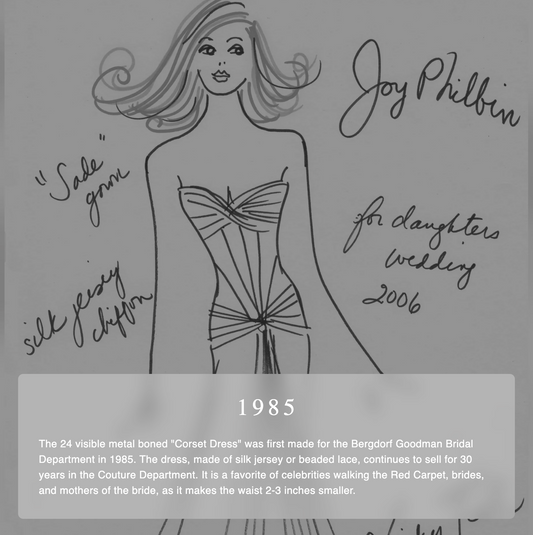 Joy Philbin
"Sade"
gown
for daughters
wedding
2006
silk jersey
chiffon
1985
The 24 visible metal boned "Corset Dress" was first made for the Bergdorf Goodman Bridal
Department in 1985. The dress, made of silk jersey or beaded lace, continues to sell for 30
years in the Couture Department. It is a favorite of celebrities walking the Red Carpet, brides,
and mothers of the bride, as it makes the waist 2-3 inches smaller.